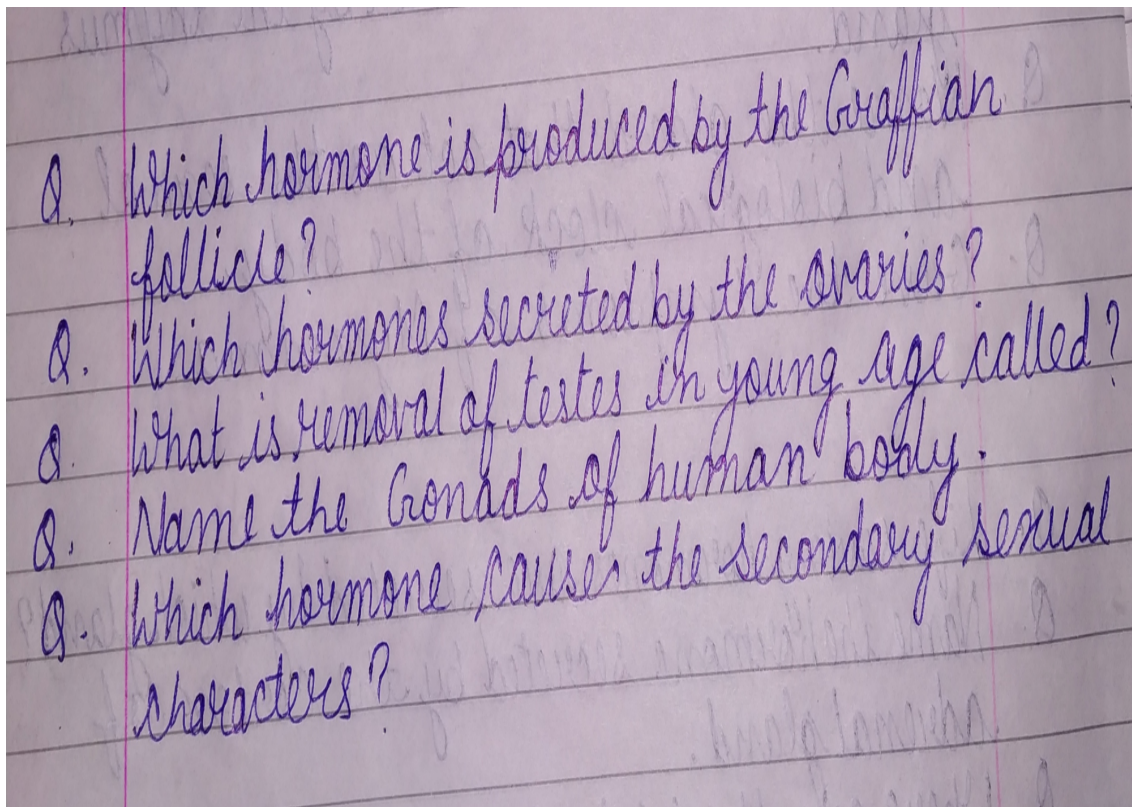 Q. Which hormone is produced by the Graffian
follicle?
Q. Which hormones secreted by the ovaries?
Q. What is removal of testes in young age called?
Q. Name the Gonads of human body.
Q. Which hormone causes the secondary sexual
characters?